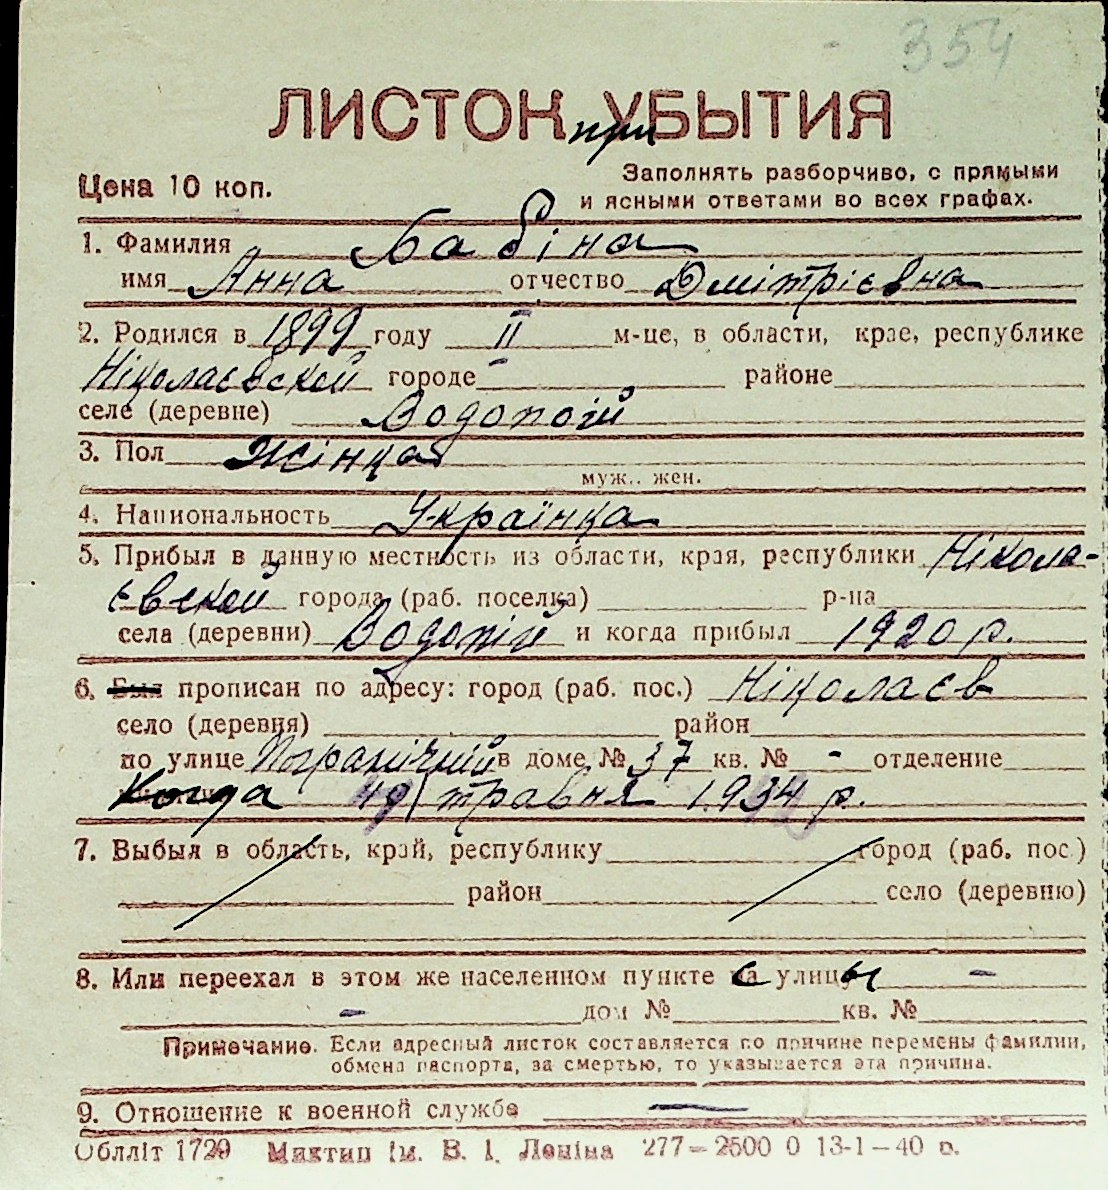 354
ЛИСТОК при УБЫТИЯ
Цена 10 коп.
Заполнять разборчиво, с прямыми
и ясными ответами во всех графах.
1. Фамилия Бабіна
имя Анна отчество Дмітрієвна
2. Родился в 1899 году II м-це, в области, крае, республике
Ніколаєвской городе - районе
селе (деревне) Водопой
3. Пол жінка
муж.. жен.
4. Национальность Українка
5. Прибыл в данную местность из области, края, республики Нікола-
євской города (раб. поселка) р-на
села (деревни) Водопій и когда прибыл 1920 р.
6. Был прописан по адресу: город (раб. пос.) Ніколаєв
село (деревня) район
по улице Пограничній в доме № 37 кв. № - отделение
Когда травня 1934 р.
7. Выбыл в область, край, республику город (раб. пос.)
район село (деревню)
8. Или переехал в этом же населенном пункте с улицы -
- дом № кв. №
Примечание. Если адресный листок составляется по причине перемены фамилии,
обмена паспорта, за смертью, то указывается эта причина.
9. Отношение к военной службе —
Обlліт 1729 Миктип ім. В. І. Леніна 277—2500 0 13-1—40 р.